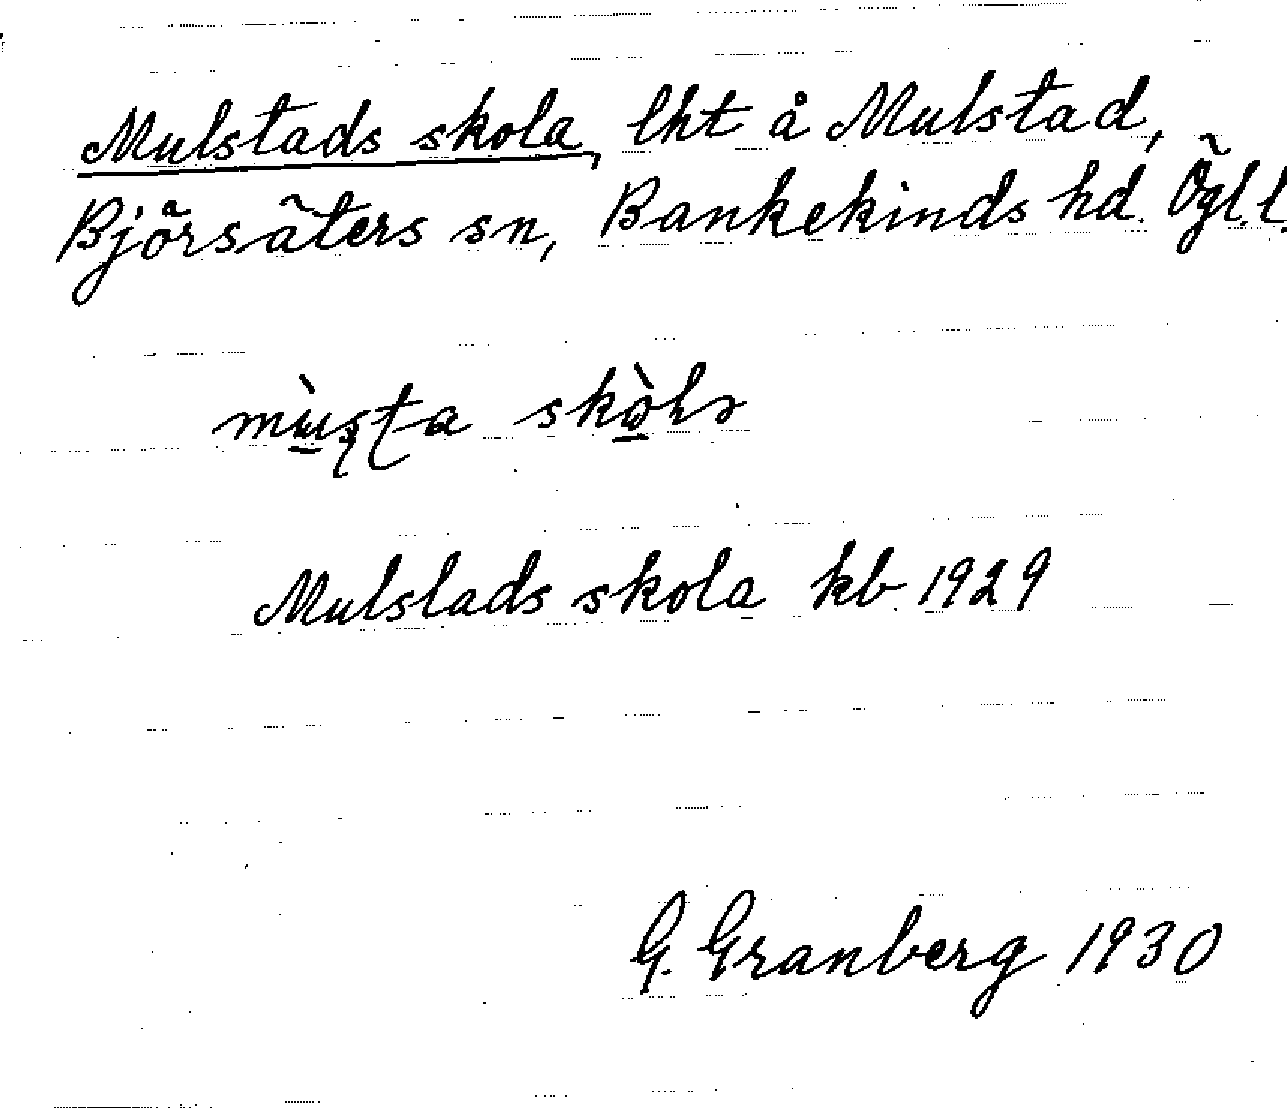 Mulstads skola, lht å Mulstad,
Björsäters sn, Bankekinds hd. Ögl.
Mulstads skola kb 1929
G. Granberg 1930